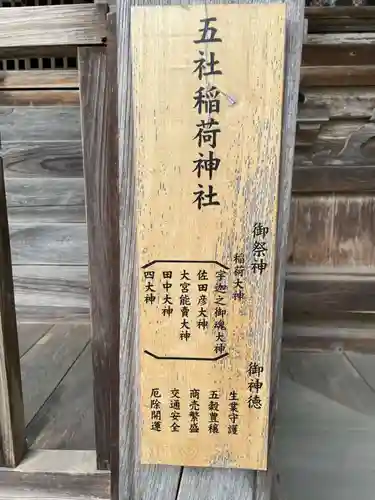 五社稲荷神社
御祭神
稲荷大神
宇迦之御魂大神
佐田彦大神
大宮能賣大神
田中大神
四大神
御神徳
生業守護
五穀豊穣
商売繁盛
交通安全
厄除開運